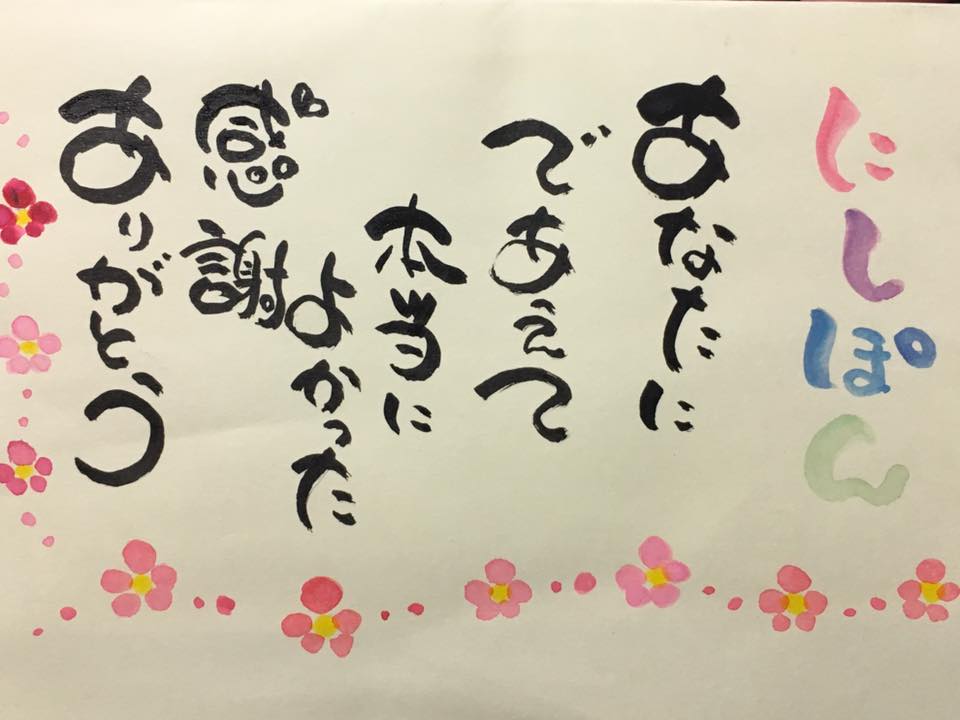 にしぽん
あなたに
であえて
本当に
よかった
感謝
ありがとう